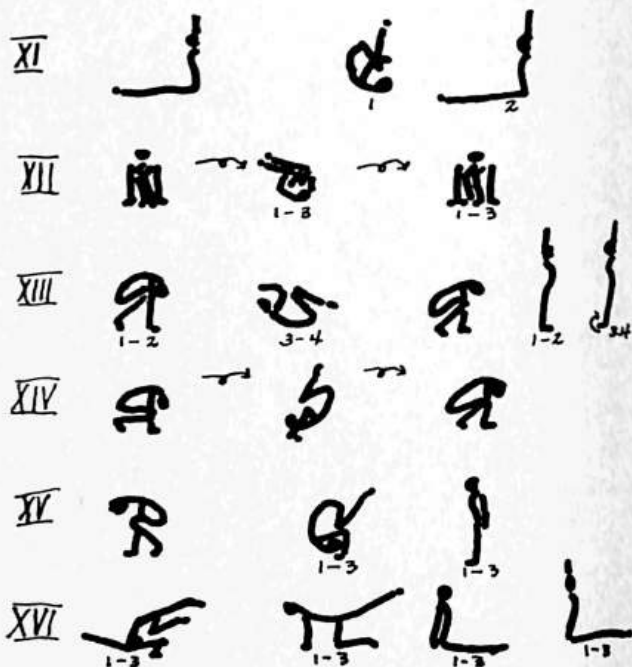 XI
1 2
XII
1-3 1-3
XIII
1-2 3-4 1-2 3-4
XIV
XV
1-3 1-3
XVI
1-3 1-3 1-3 1-3